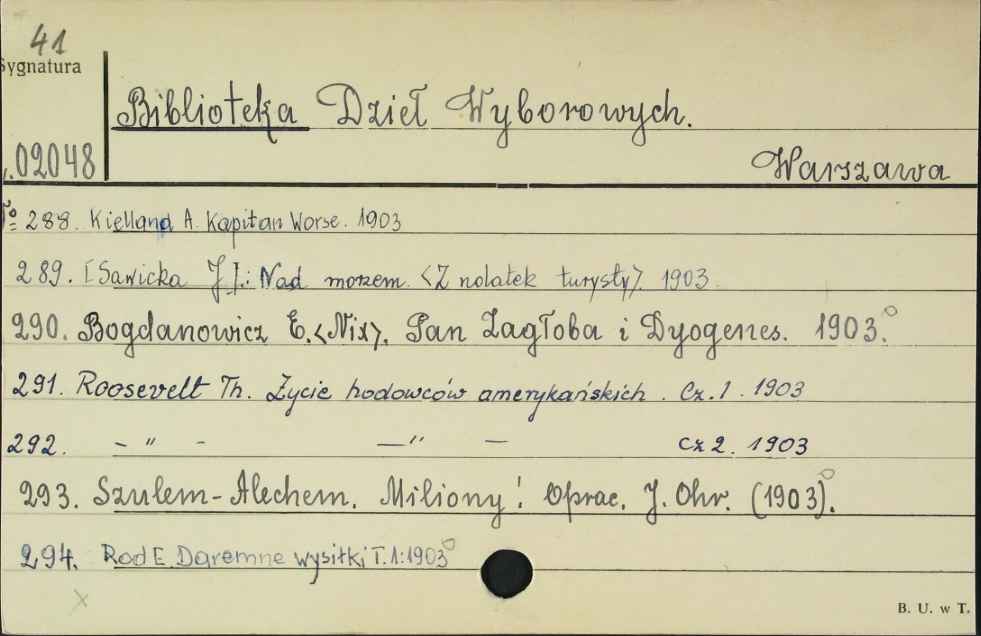 41
Sygnatura
Biblioteka Dzieł Wyborowych.
02048
Warszawa
No 288. Kielland A. Kapitan Worse. 1903
289. [Sawicka J.]: Nad morzem. <Z notatek turysty>. 1903.
290. Bogdanowicz E. <Nix>. Pan Zagłoba i Dyogenes. 1903.°
291. Roosevelt Th. Życie hodowców amerykańskich. Cz. 1. 1903
292. - " - — " — Cz 2. 1903
293. Szulem-Alechem. Miliony! Oprac. J. Ohr. (1903).°
294. Rod E. Daremne wysiłki T. 1: 1903°
x
B. U. w T.